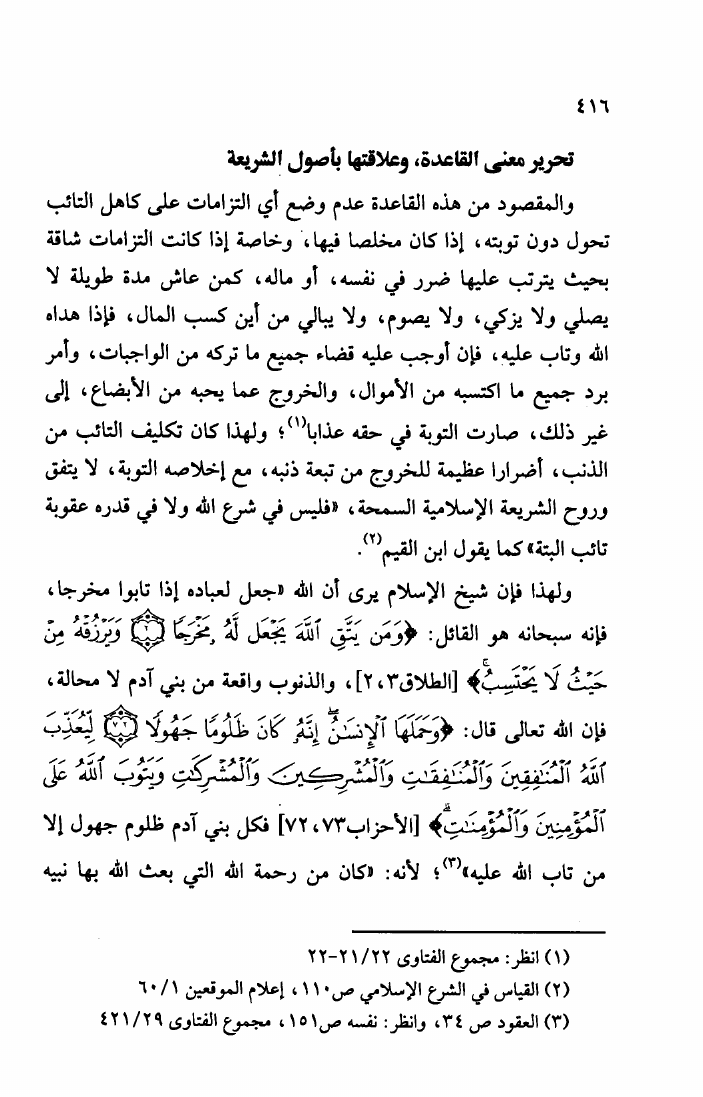 ٤١٦
تحرير معنى القاعدة، وعلاقتها بأصول الشريعة
والمقصود من هذه القاعدة عدم وضع أي التزامات على كاهل التائب
تحول دون توبته، إذا كان مخلصا فيها، وخاصة إذا كانت التزامات شاقة
بحيث يترتب عليها ضرر في نفسه، أو ماله، كمن عاش مدة طويلة لا
يصلي ولا يزكي، ولا يصوم، ولا يبالي من أين كسب المال، فإذا هداه
الله وتاب عليه، فإن أوجب عليه قضاء جميع ما تركه من الواجبات، وأمر
برد جميع ما اكتسبه من الأموال، والخروج عما يحبه من الأبضاع، إلى
غير ذلك، صارت التوبة في حقه عذابا(١)؛ ولهذا كان تكليف التائب من
الذنب، أضرارا عظيمة للخروج من تبعة ذنبه، مع إخلاصه التوبة، لا يتفق
وروح الشريعة الإسلامية السمحة، «فليس في شرع الله ولا في قدره عقوبة
تائب البتة» كما يقول ابن القيم(٢).
ولهذا فإن شيخ الإسلام يرى أن الله «جعل لعباده إذا تابوا مخرجا،
فإنه سبحانه هو القائل: ﴿وَمَن يَتَّقِ ٱللَّهَ يَجْعَل لَّهُۥ مَخْرَجًا ۝٢ وَيَرْزُقْهُ مِنْ
حَيْثُ لَا يَحْتَسِبُۚ﴾ [الطلاق٢،٣]، والذنوب واقعة من بني آدم لا محالة،
فإن الله تعالى قال: ﴿وَحَمَلَهَا ٱلْإِنسَٰنُۖ إِنَّهُۥ كَانَ ظَلُومًا جَهُولًا ۝٧٢ لِّيُعَذِّبَ
ٱللَّهُ ٱلْمُنَٰفِقِينَ وَٱلْمُنَٰفِقَٰتِ وَٱلْمُشْرِكِينَ وَٱلْمُشْرِكَٰتِ وَيَتُوبَ ٱللَّهُ عَلَى
ٱلْمُؤْمِنِينَ وَٱلْمُؤْمِنَٰتِۗ﴾ [الأحزاب٧٢،٧٣] فكل بني آدم ظلوم جهول إلا
من تاب الله عليه»(٣)؛ لأنه: «كان من رحمة الله التي بعث الله بها نبيه
(١) انظر: مجموع الفتاوى ٢١/٢٢-٢٢
(٢) القياس في الشرع الإسلامي ص١١٠، إعلام الموقعين ٦٠/١
(٣) العقود ص ٣٤، وانظر: نفسه ص١٥١، مجموع الفتاوى ٤٢١/٢٩